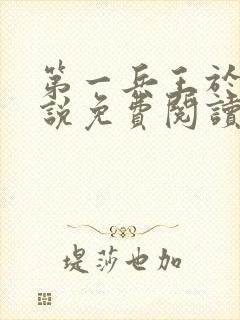 第一兵王於
說免費閱讀
堤莎也加